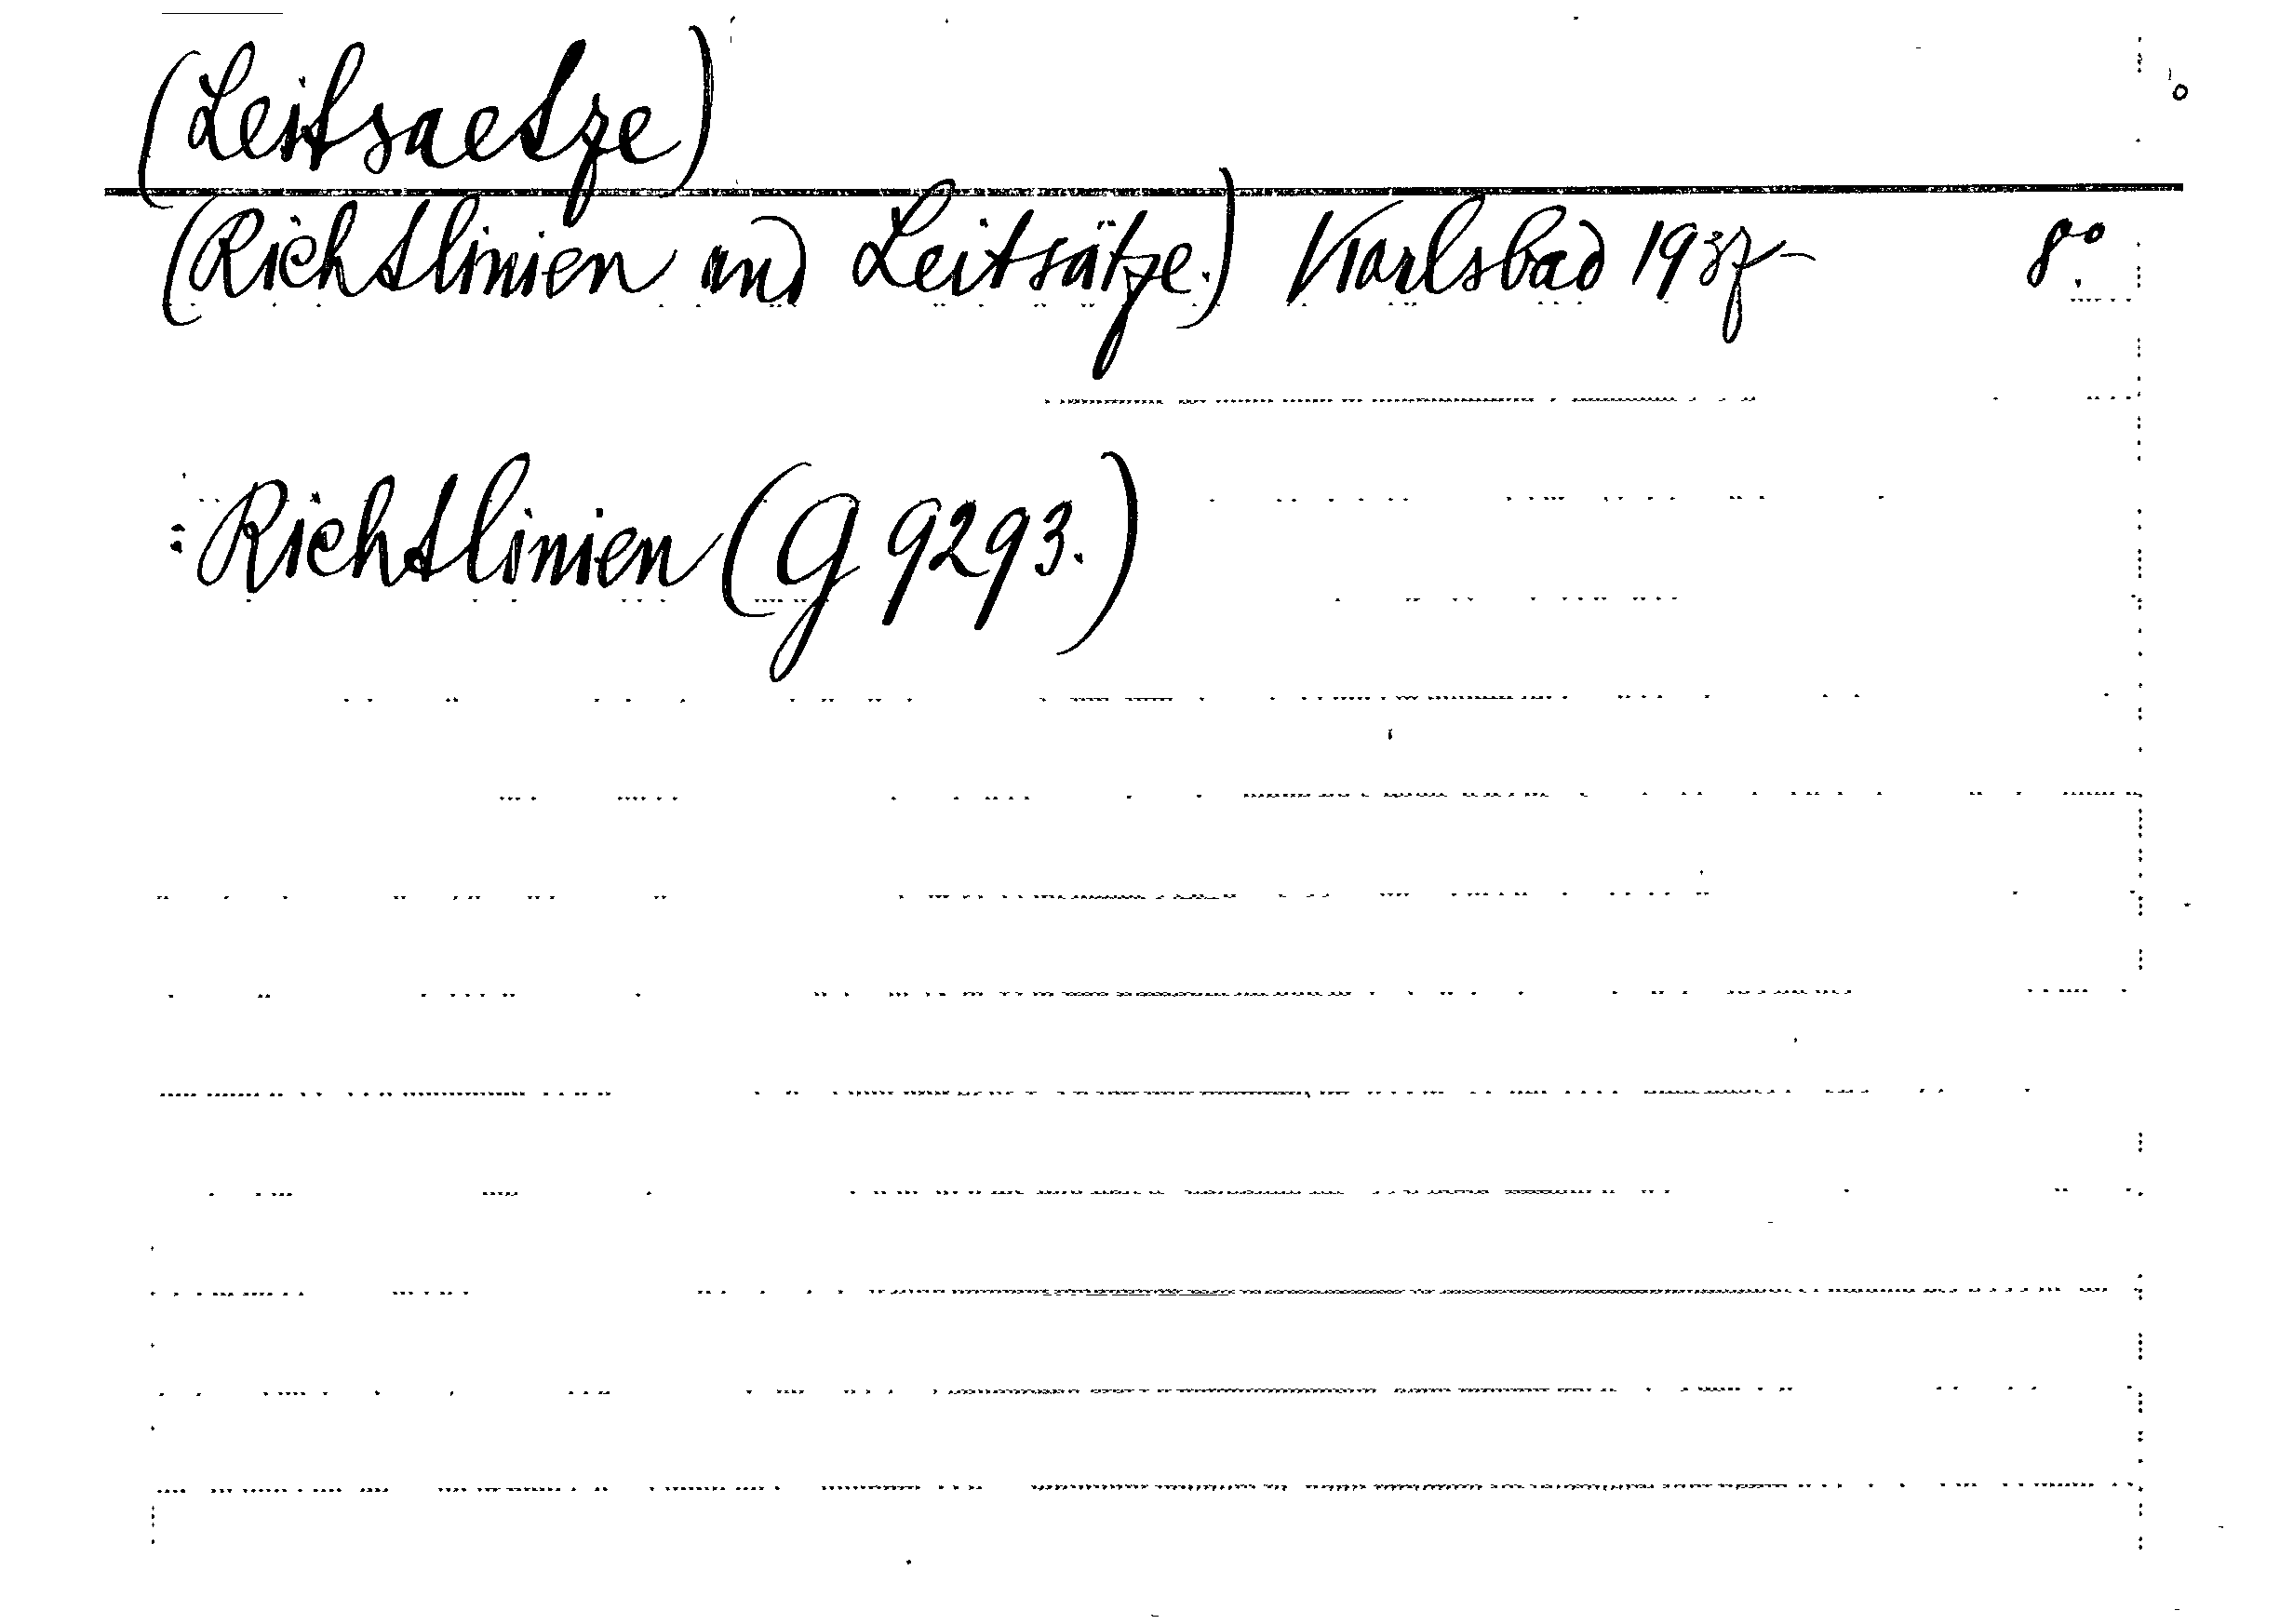 (Leitsaetze)
(Richtlinien und Leitsätze.) Karlsbad 1937- 8º.
= Richtlinien (G 9293.)